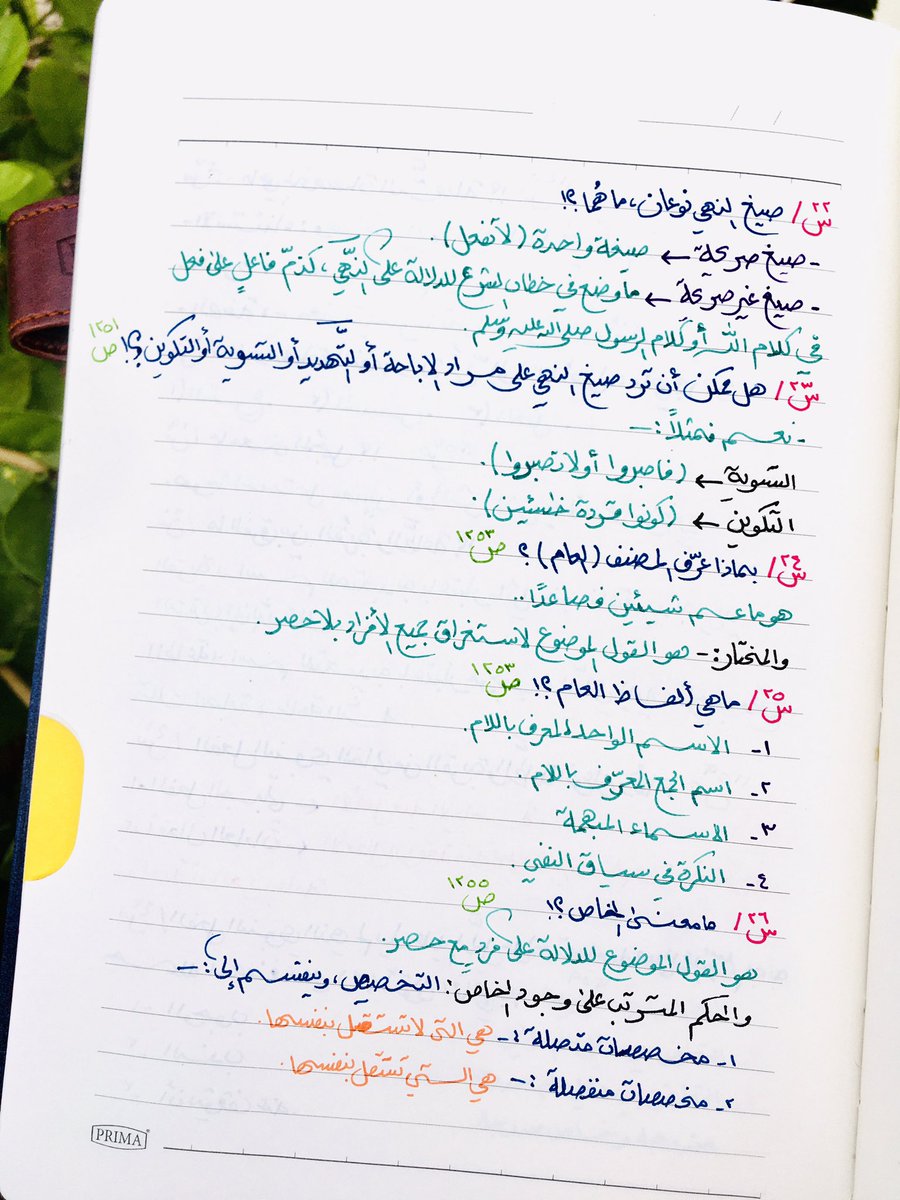 س٢٢/ صيغ النهي نوعان، ما هُما؟!
- صيغ صريحة ← صيغة واحدة (لا تفعل).
- صيغ غير صريحة ← ما وضع في خطاب الشرع للدلالة على النَّهي، كذمّ فاعلٍ على فعل
في كلام الله أو كلام الرسول صلى الله عليه وسلم.
س٢٣/ هل ممكن أن ترد صيغ النهي على مراد الإباحة أو التَّهديد أو التسوية أو التكوين؟! ص١٢٥١
- نعم فمثلاً:-
التسوية ← (فاصبروا أو لا تصبروا).
التكوين ← (كونوا قردة خاسئين).
س٢٤/ بماذا عرّف المصنف (العام)؟ ص١٢٥٣
هو ما عم شيئين فصاعدًا..
والمختار:- هو القول الموضوع لاستغراق جميع الأفراد بلا حصر.
س٢٥/ ما هي ألفاظ العام؟! ص١٢٥٣
١- الاسم الواحد المعرف باللام.
٢- اسم الجمع المعرّف باللام.
٣- الاسماء المبهمة
٤- النكرة في سياق النفي.
س٢٦/ ما معنى الخاص؟! ص١٢٥٥
هو القول الموضوع للدلالة على فردٍ مع حصر.
والحكم المترتب على وجود الخاص: التخصيص، وينقسم إلى:-
١- مخصصات متصلة:- هي التي لا تستقل بنفسها.
٢- مخصصات منفصلة:- هي التي تستقل بنفسها.
PRIMA